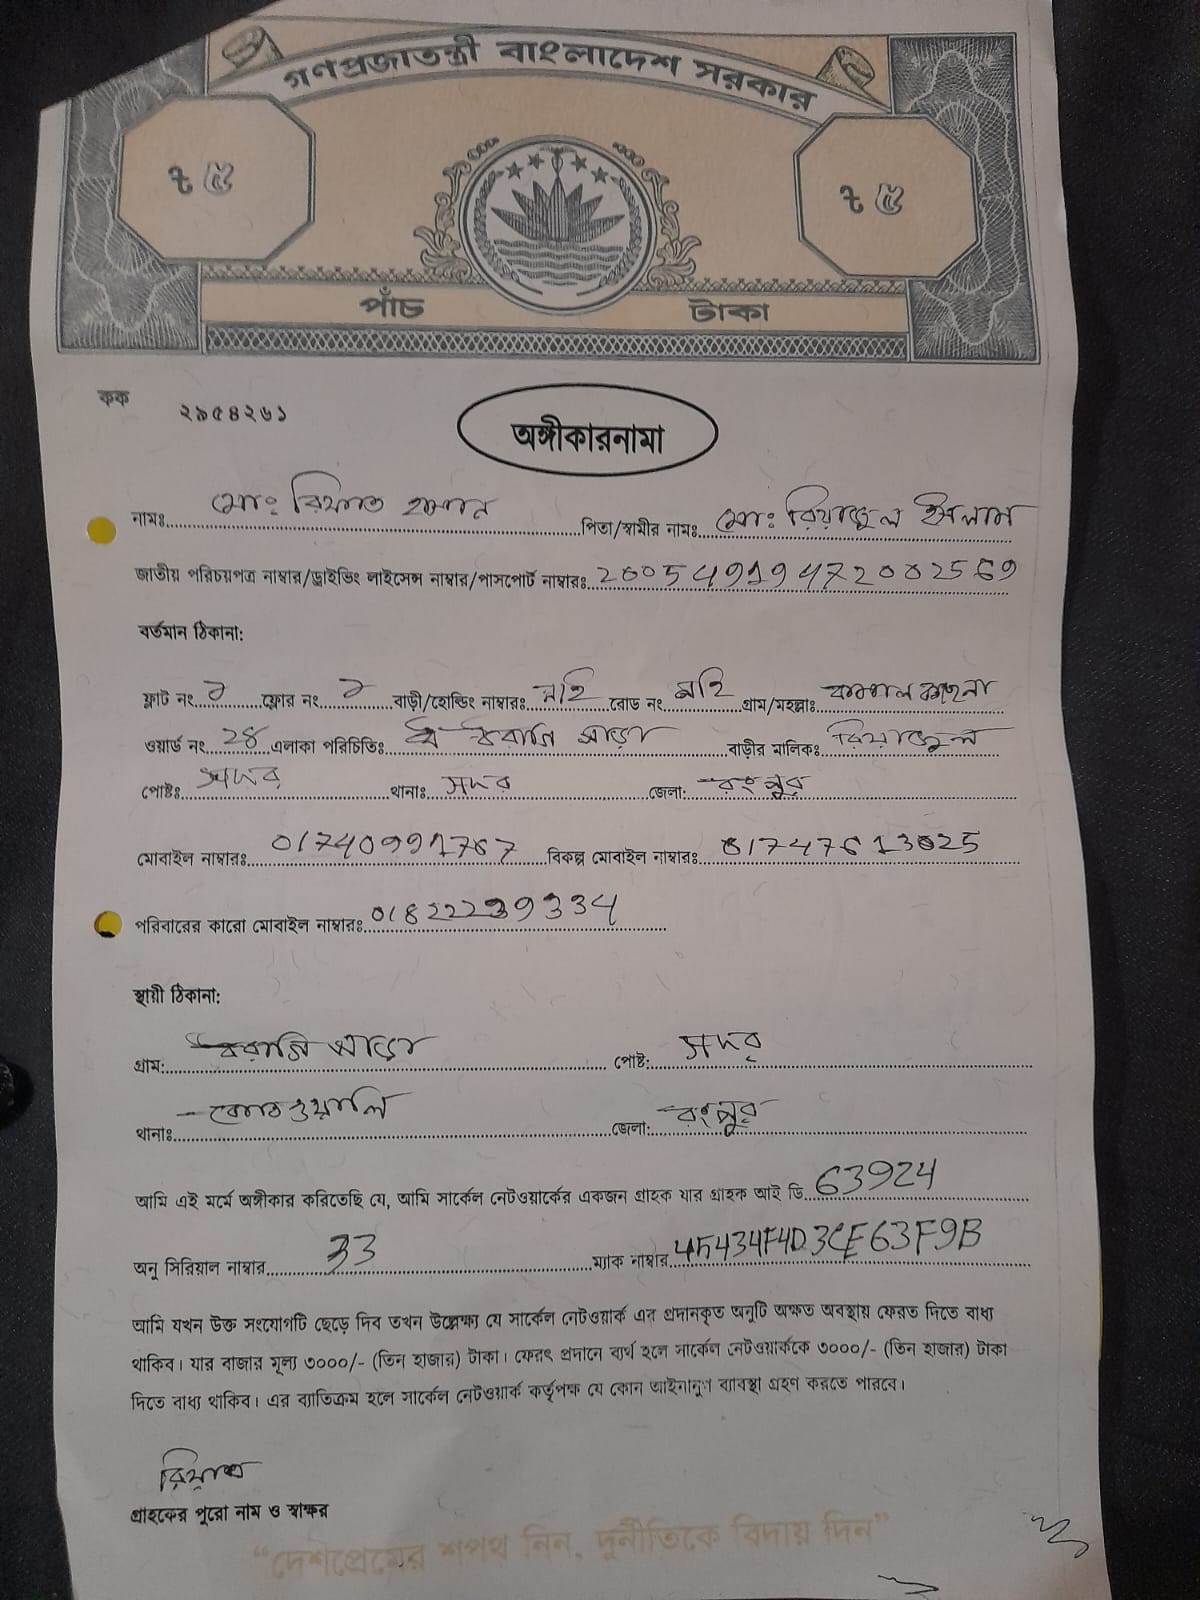 গণপ্রজাতন্ত্রী বাংলাদেশ সরকার
৳ ৫ ৳ ৫
পাঁচ টাকা
কক ২৯৫৪২৬১
অঙ্গীকারনামা
নামঃ মোঃ রিফাত হাসান পিতা/স্বামীর নামঃ মোঃ রিয়াজুল ইসলাম
জাতীয় পরিচয়পত্র নাম্বার/ড্রাইভিং লাইসেন্স নাম্বার/পাসপোর্ট নাম্বারঃ 20054919472002569
বর্তমান ঠিকানা:
ফ্লাট নং ১ ফ্লোর নং ১ বাড়ী/হোল্ডিং নাম্বারঃ নাই রোড নং নাই গ্রাম/মহল্লাঃ কামাল কাছনা
ওয়ার্ড নং 24 এলাকা পরিচিতিঃ পাড়া বাড়ীর মালিকঃ রিয়াজুল
পোষ্টঃ সদর থানাঃ সদর জেলা: রংপুর
মোবাইল নাম্বারঃ 01740991767 বিকল্প মোবাইল নাম্বারঃ 01747613025
পরিবারের কারো মোবাইল নাম্বারঃ 01822239334
স্থায়ী ঠিকানা:
গ্রাম: পাড়া পোষ্ট: সদর
থানাঃ কোতওয়ালি জেলা: রংপুর
আমি এই মর্মে অঙ্গীকার করিতেছি যে, আমি সার্কেল নেটওয়ার্কের একজন গ্রাহক যার গ্রাহক আই ডি 63924
অনু সিরিয়াল নাম্বার 33 ম্যাক নাম্বার 45434F4D3CE63F9B
আমি যখন উক্ত সংযোগটি ছেড়ে দিব তখন উল্লেক্ষ্য যে সার্কেল নেটওয়ার্ক এর প্রদানকৃত অনুটি অক্ষত অবস্থায় ফেরত দিতে বাধ্য
থাকিব। যার বাজার মূল্য ৩০০০/- (তিন হাজার) টাকা। ফেরৎ প্রদানে ব্যর্থ হলে সার্কেল নেটওয়ার্ককে ৩০০০/- (তিন হাজার) টাকা
দিতে বাধ্য থাকিব। এর ব্যাতিক্রম হলে সার্কেল নেটওয়ার্ক কর্তৃপক্ষ যে কোন আইনানুগ ব্যাবস্থা গ্রহণ করতে পারবে।
রিফাত
গ্রাহকের পুরো নাম ও স্বাক্ষর
“দেশপ্রেমের শপথ নিন, দুর্নীতিকে বিদায় দিন”